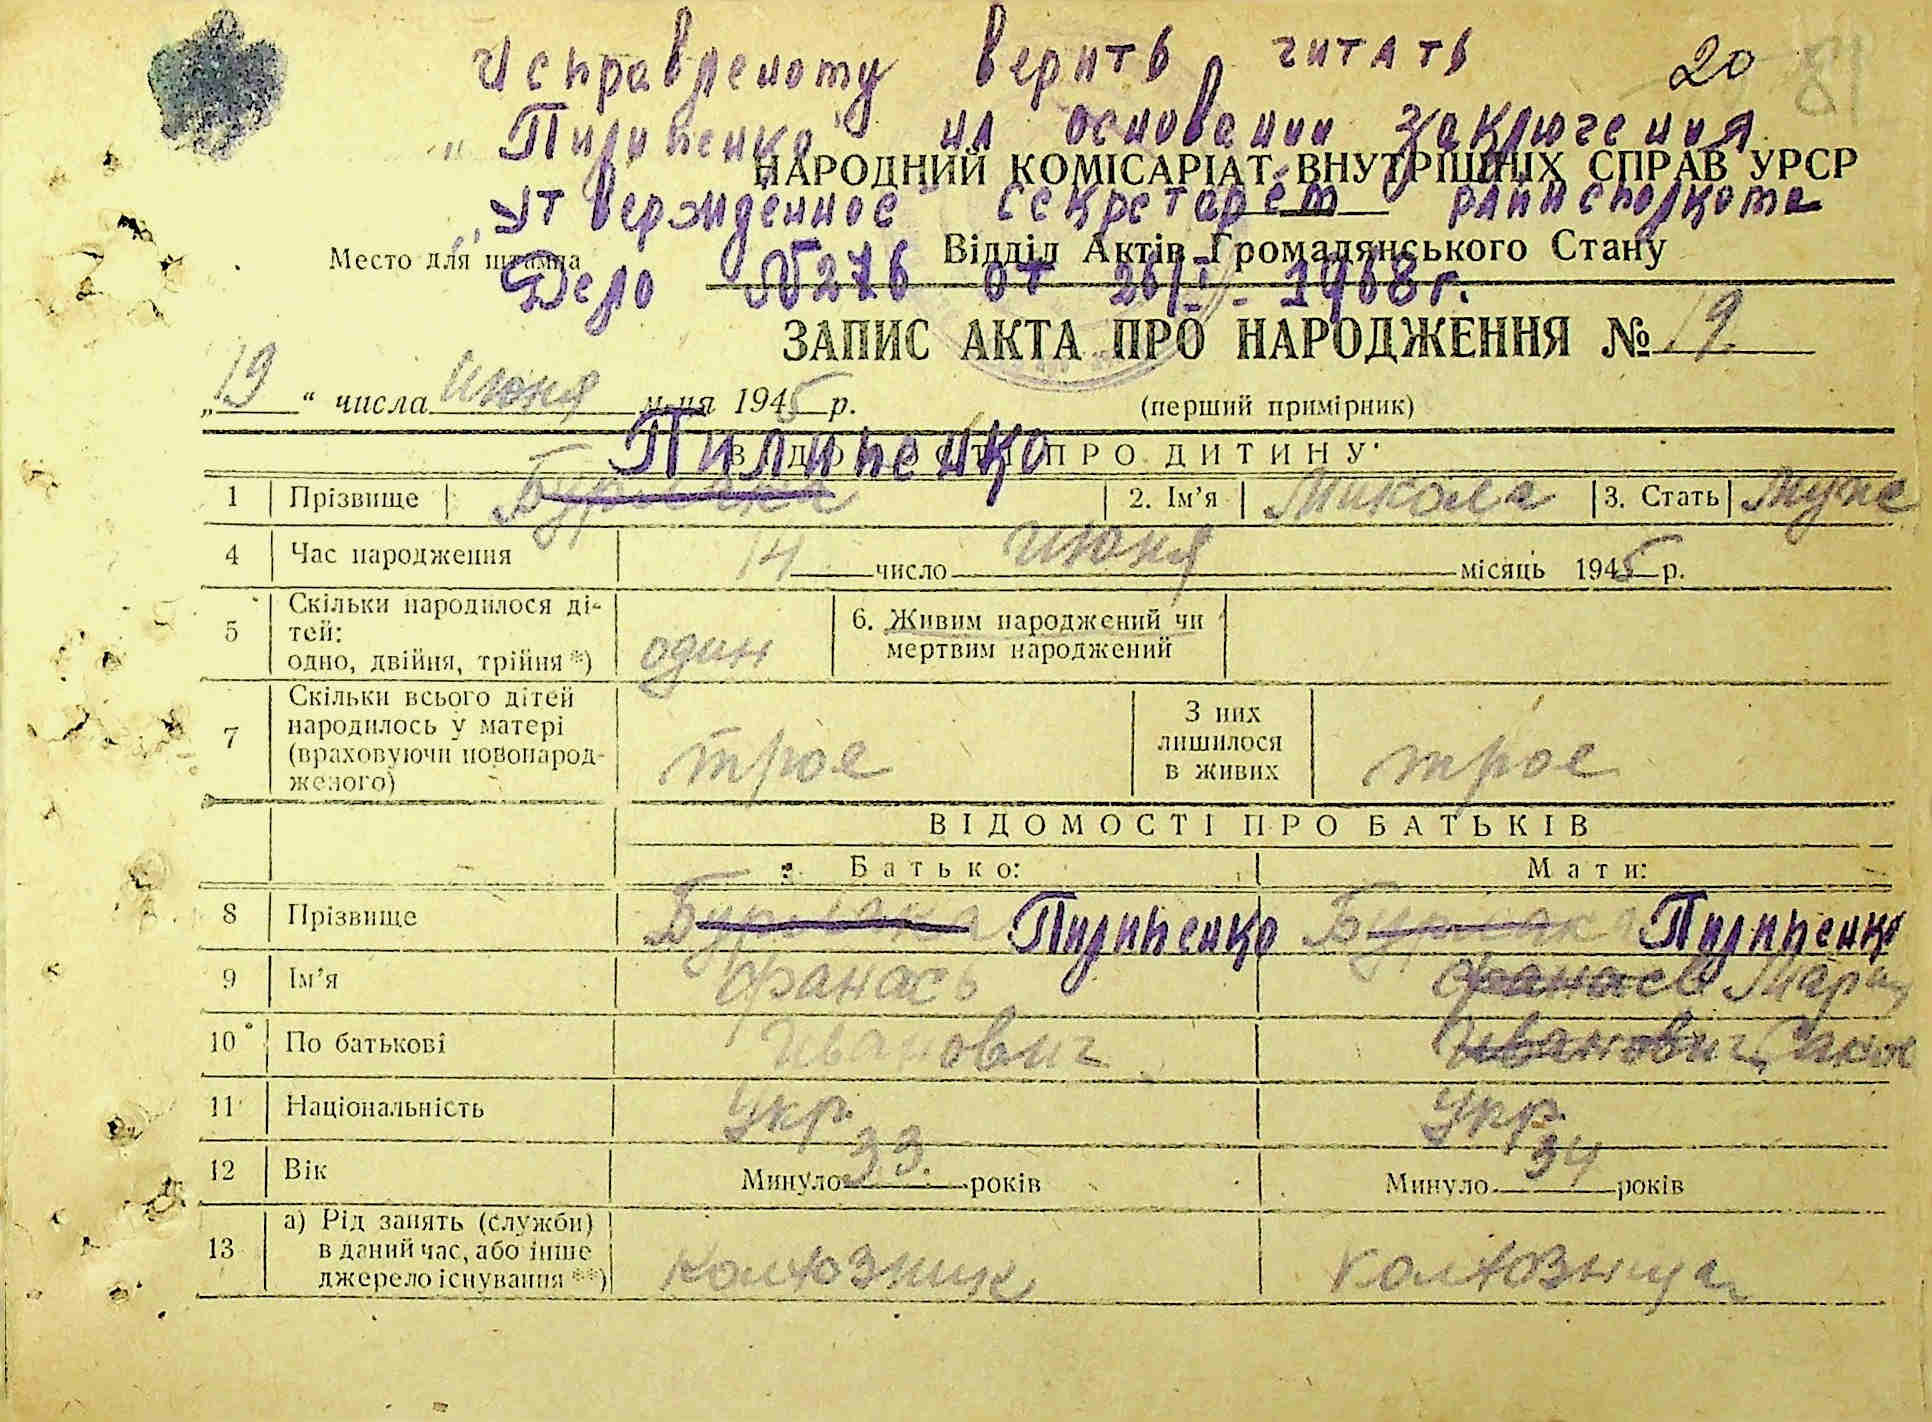 Исправленому верить читать 20
„Пилипенко" на основании заключения
НАРОДНИЙ КОМІСАРІАТ ВНУТРІШНІХ СПРАВ УРСР
Утвержденное секретарём райисполкома
Место для штампа Відділ Актів Громадянського Стану
Дело №276 от 26/I - 1968 г.
ЗАПИС АКТА ПРО НАРОДЖЕННЯ № 19.
„19" числа июня м-ця 1945 р. (перший примірник)
Пилипенко
ВІДОМОСТІ ПРО ДИТИНУ
1 Прізвище 2. Ім'я Микола 3. Стать Муже
4 Час народження 14 число июня місяць 1945 р.
5 Скільки народилося ді-
тей:
одно, двійня, трійня *) один
6. Живим народжений чи
мертвим народжений
7 Скільки всього дітей
народилось у матері
(враховуючи новонарод-
женого) трое
З них
лишилося
в живих трое
ВІДОМОСТІ ПРО БАТЬКІВ
Батько: Мати:
8 Прізвище Пилипенко Пилипенко
9 Ім'я Фанась Фанась Мария
10 По батькові Иванович Иванович
11 Національність Укр. Укр.
12 Вік Минуло 33. років Минуло 34 років
13 а) Рід занять (служби)
в даний час, або інше
джерело існування **) колхозник колхозница